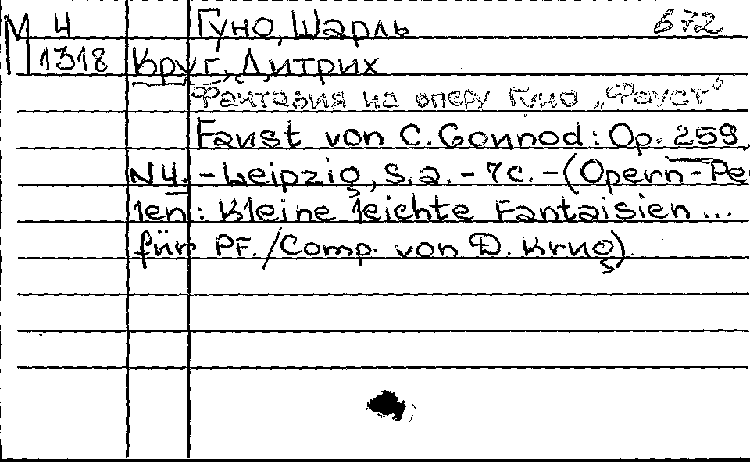 М 4 Гуно, Шарль 672
1318 Круг, Дитрих
Фантазия на оперу Гуно „Фауст"
Faust von C. Gounod: Op. 259,
N4. - Leipzig, s.a. - 7c. - (Opern-Pe
len: Kleine leichte Fantaisien...
für PF. /Comp. von D. Krug)